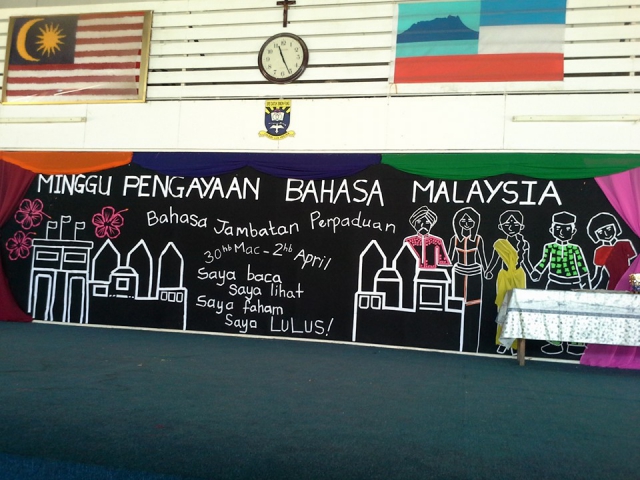 MINGGU PENGAYAAN BAHASA MALAYSIA
Bahasa Jambatan Perpaduan
30hb Mac - 2hb April
Saya baca
Saya lihat
Saya faham
Saya LULUS!